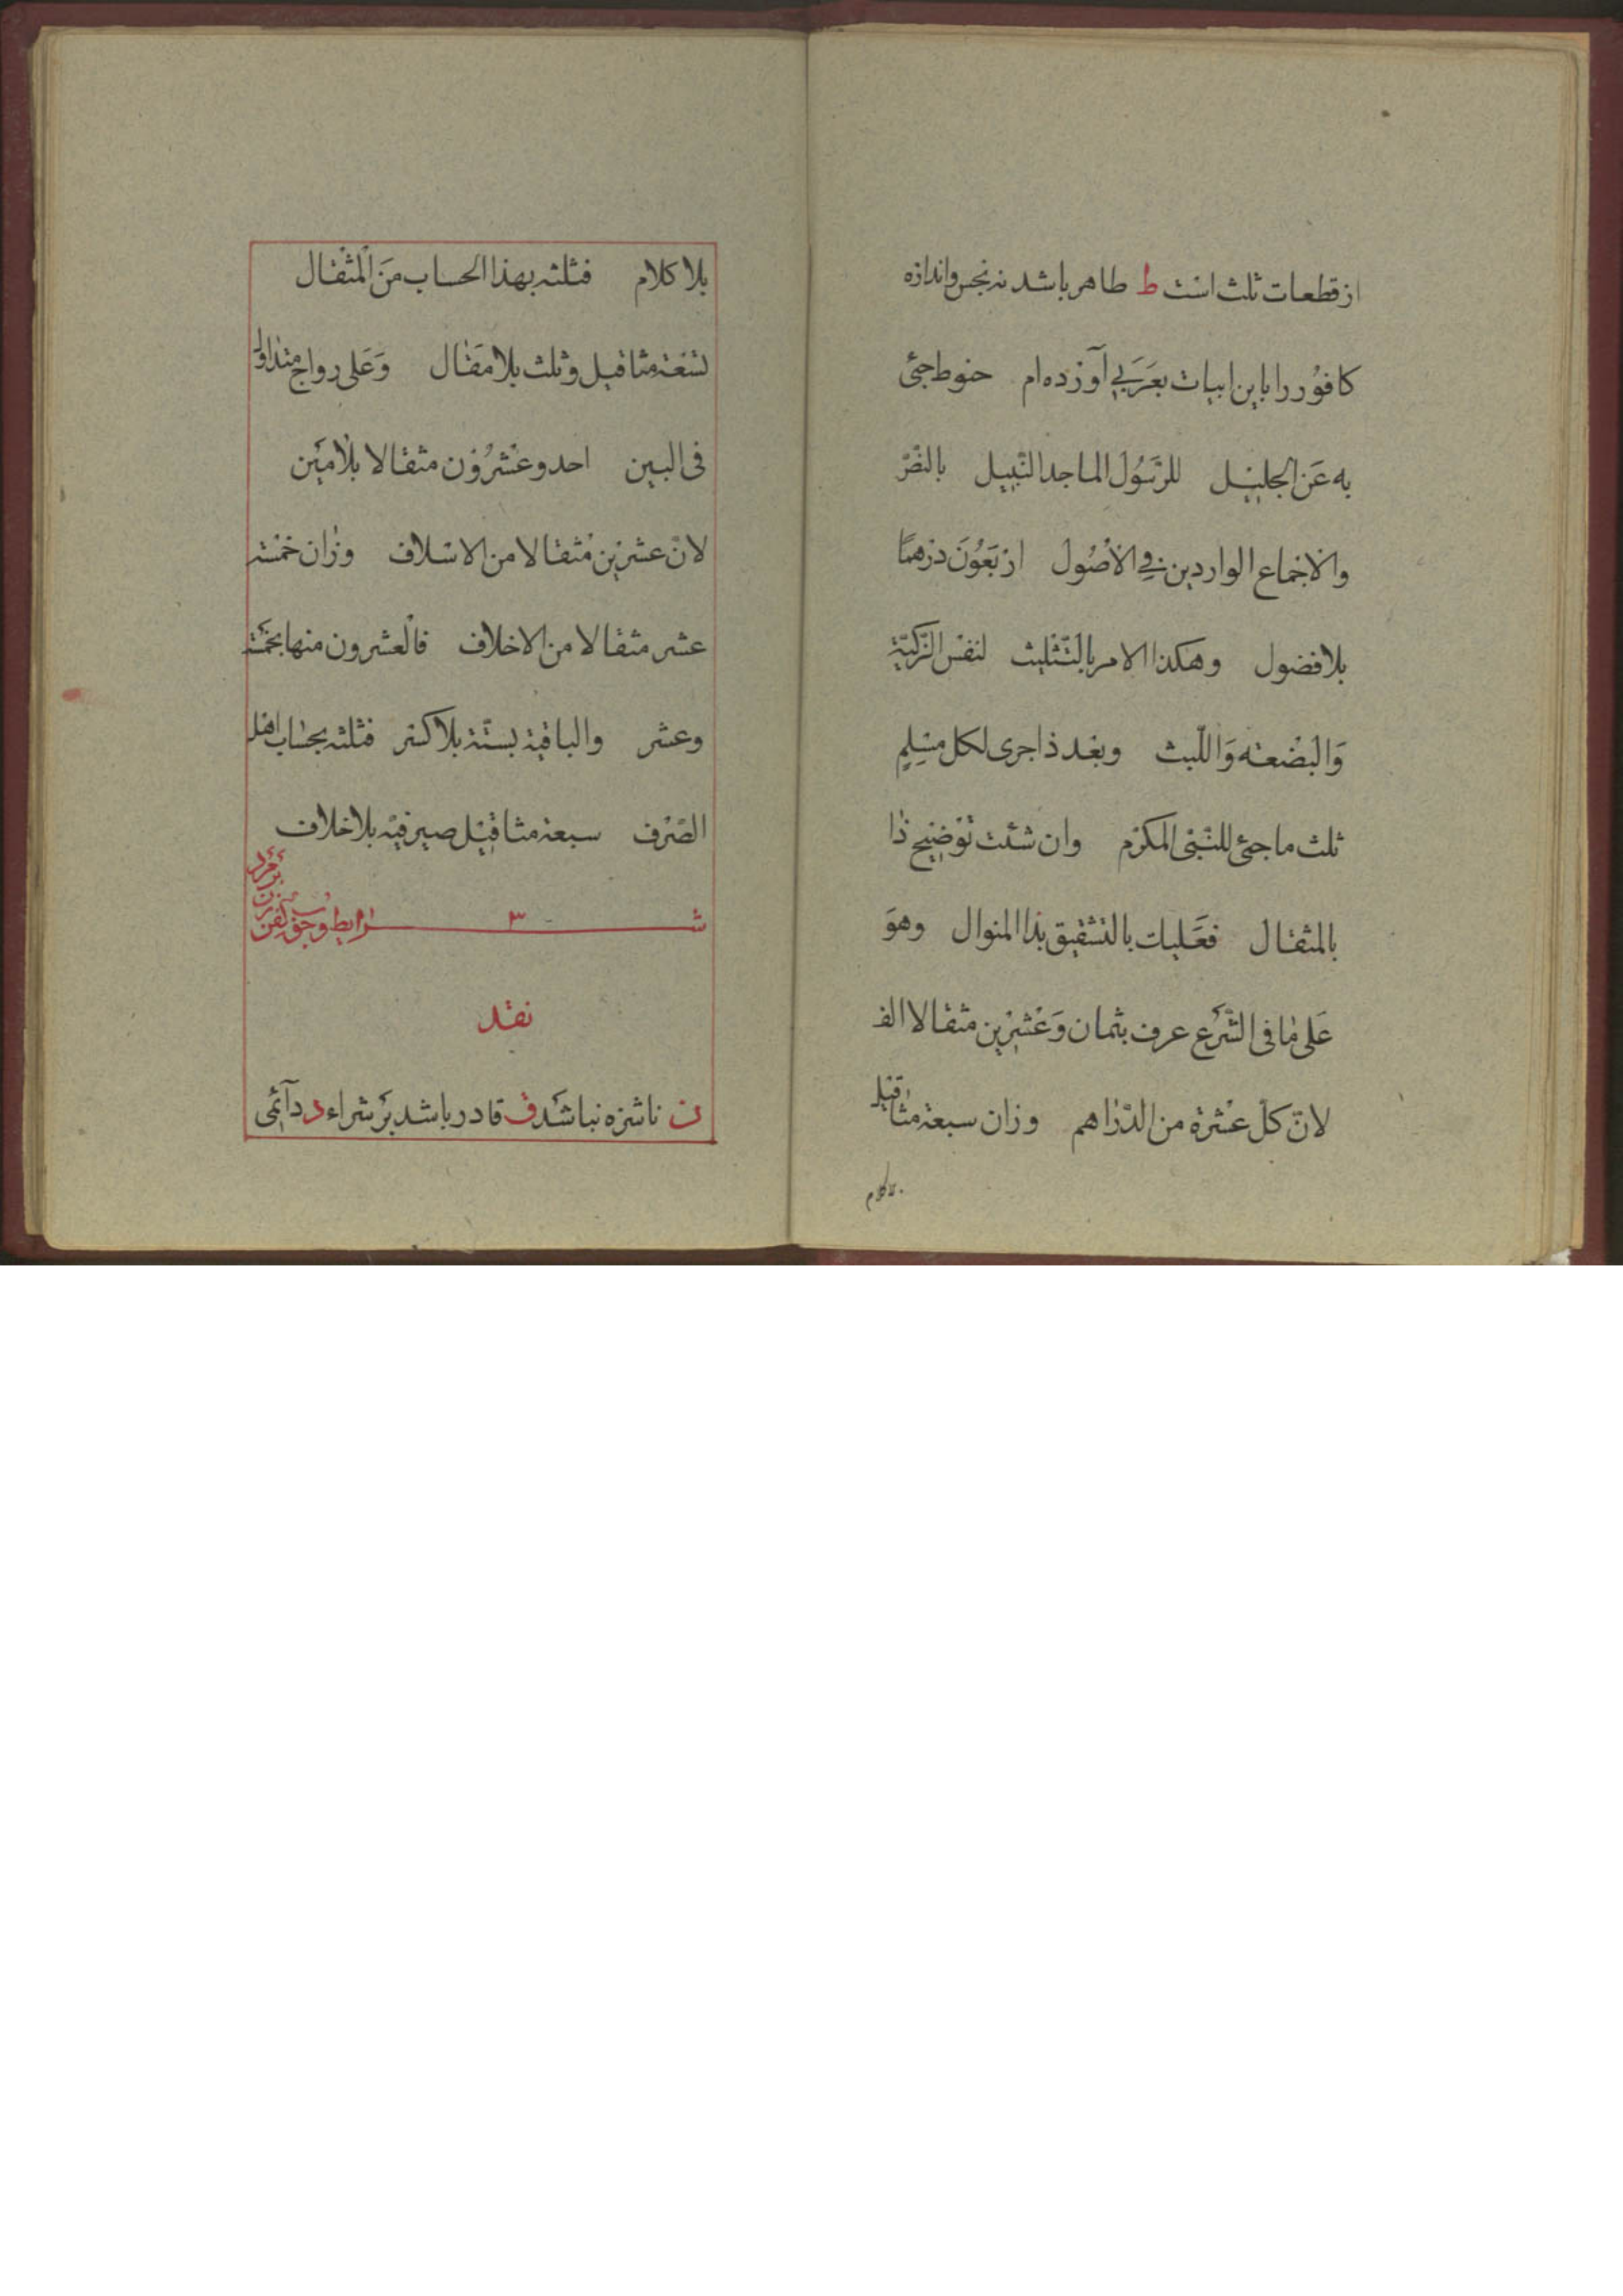 از قطعات ثلث است ط طاهر باشد نه نجس و اندازه
کافور را باین ابیات بعربی آورده‌ام حنوط جئ
به عن الجلیل للرسول الماجد النبیل بالنصّ
والاجماع الواردین فی الاصول اربعون درهمًا
بلا فضول وهکذا الامر بالتثلیث لنفس الزکیّة
وَالبضعته وَاللّیث وبعد ذا جری لکل مسلمٍ
ثلث ما جئ للنّبی المکرّم وان شئت توضیح ذا
بالمثقال فعلیات بالتشقیق بذا المنوال وهوَ
عَلی ما فی الشّرع عرف بثمان وَعشرین مثقالا الف
لانّ کلّ عشرة من الدّراهم وزان سبعة مثاقیل
بلاکلام
بلا کلام فثلثه بهذا الحساب مَن المثقال
تسعة مثاقیل وثلث بلا مقال وَعَلی رواج متداول
فی البین احد وعشرُون مثقالا بلامَین
لانّ عشرین مثقالا من الاسلاف وزان خمسة
عشر مثقالا من الاخلاف فالعشرون منها بخمسة
وعشر والباقیة بستّة بلا کسر فثلثه بحساب اهل
الصّرف سبعة مثاقیل صیرفیّه بلا خلاف
شـ ٣ ـرایط وجوب کفن زن بر مرد
نقد
ن ناشزه نباشد ق قادر باشد بر شراء د دآئمی